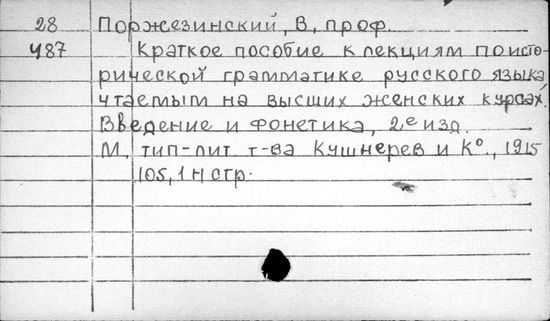 28 Поржезинский, В, проф.
487 Краткое пособие к лекциям по исто-
рической грамматике русского языка
чтаемым на высших женских курсах.
Введение и фонетика, 2е изд.
М, тип-лит т-ва Кушнерев и Ко., 1915
105, 1 н стр.